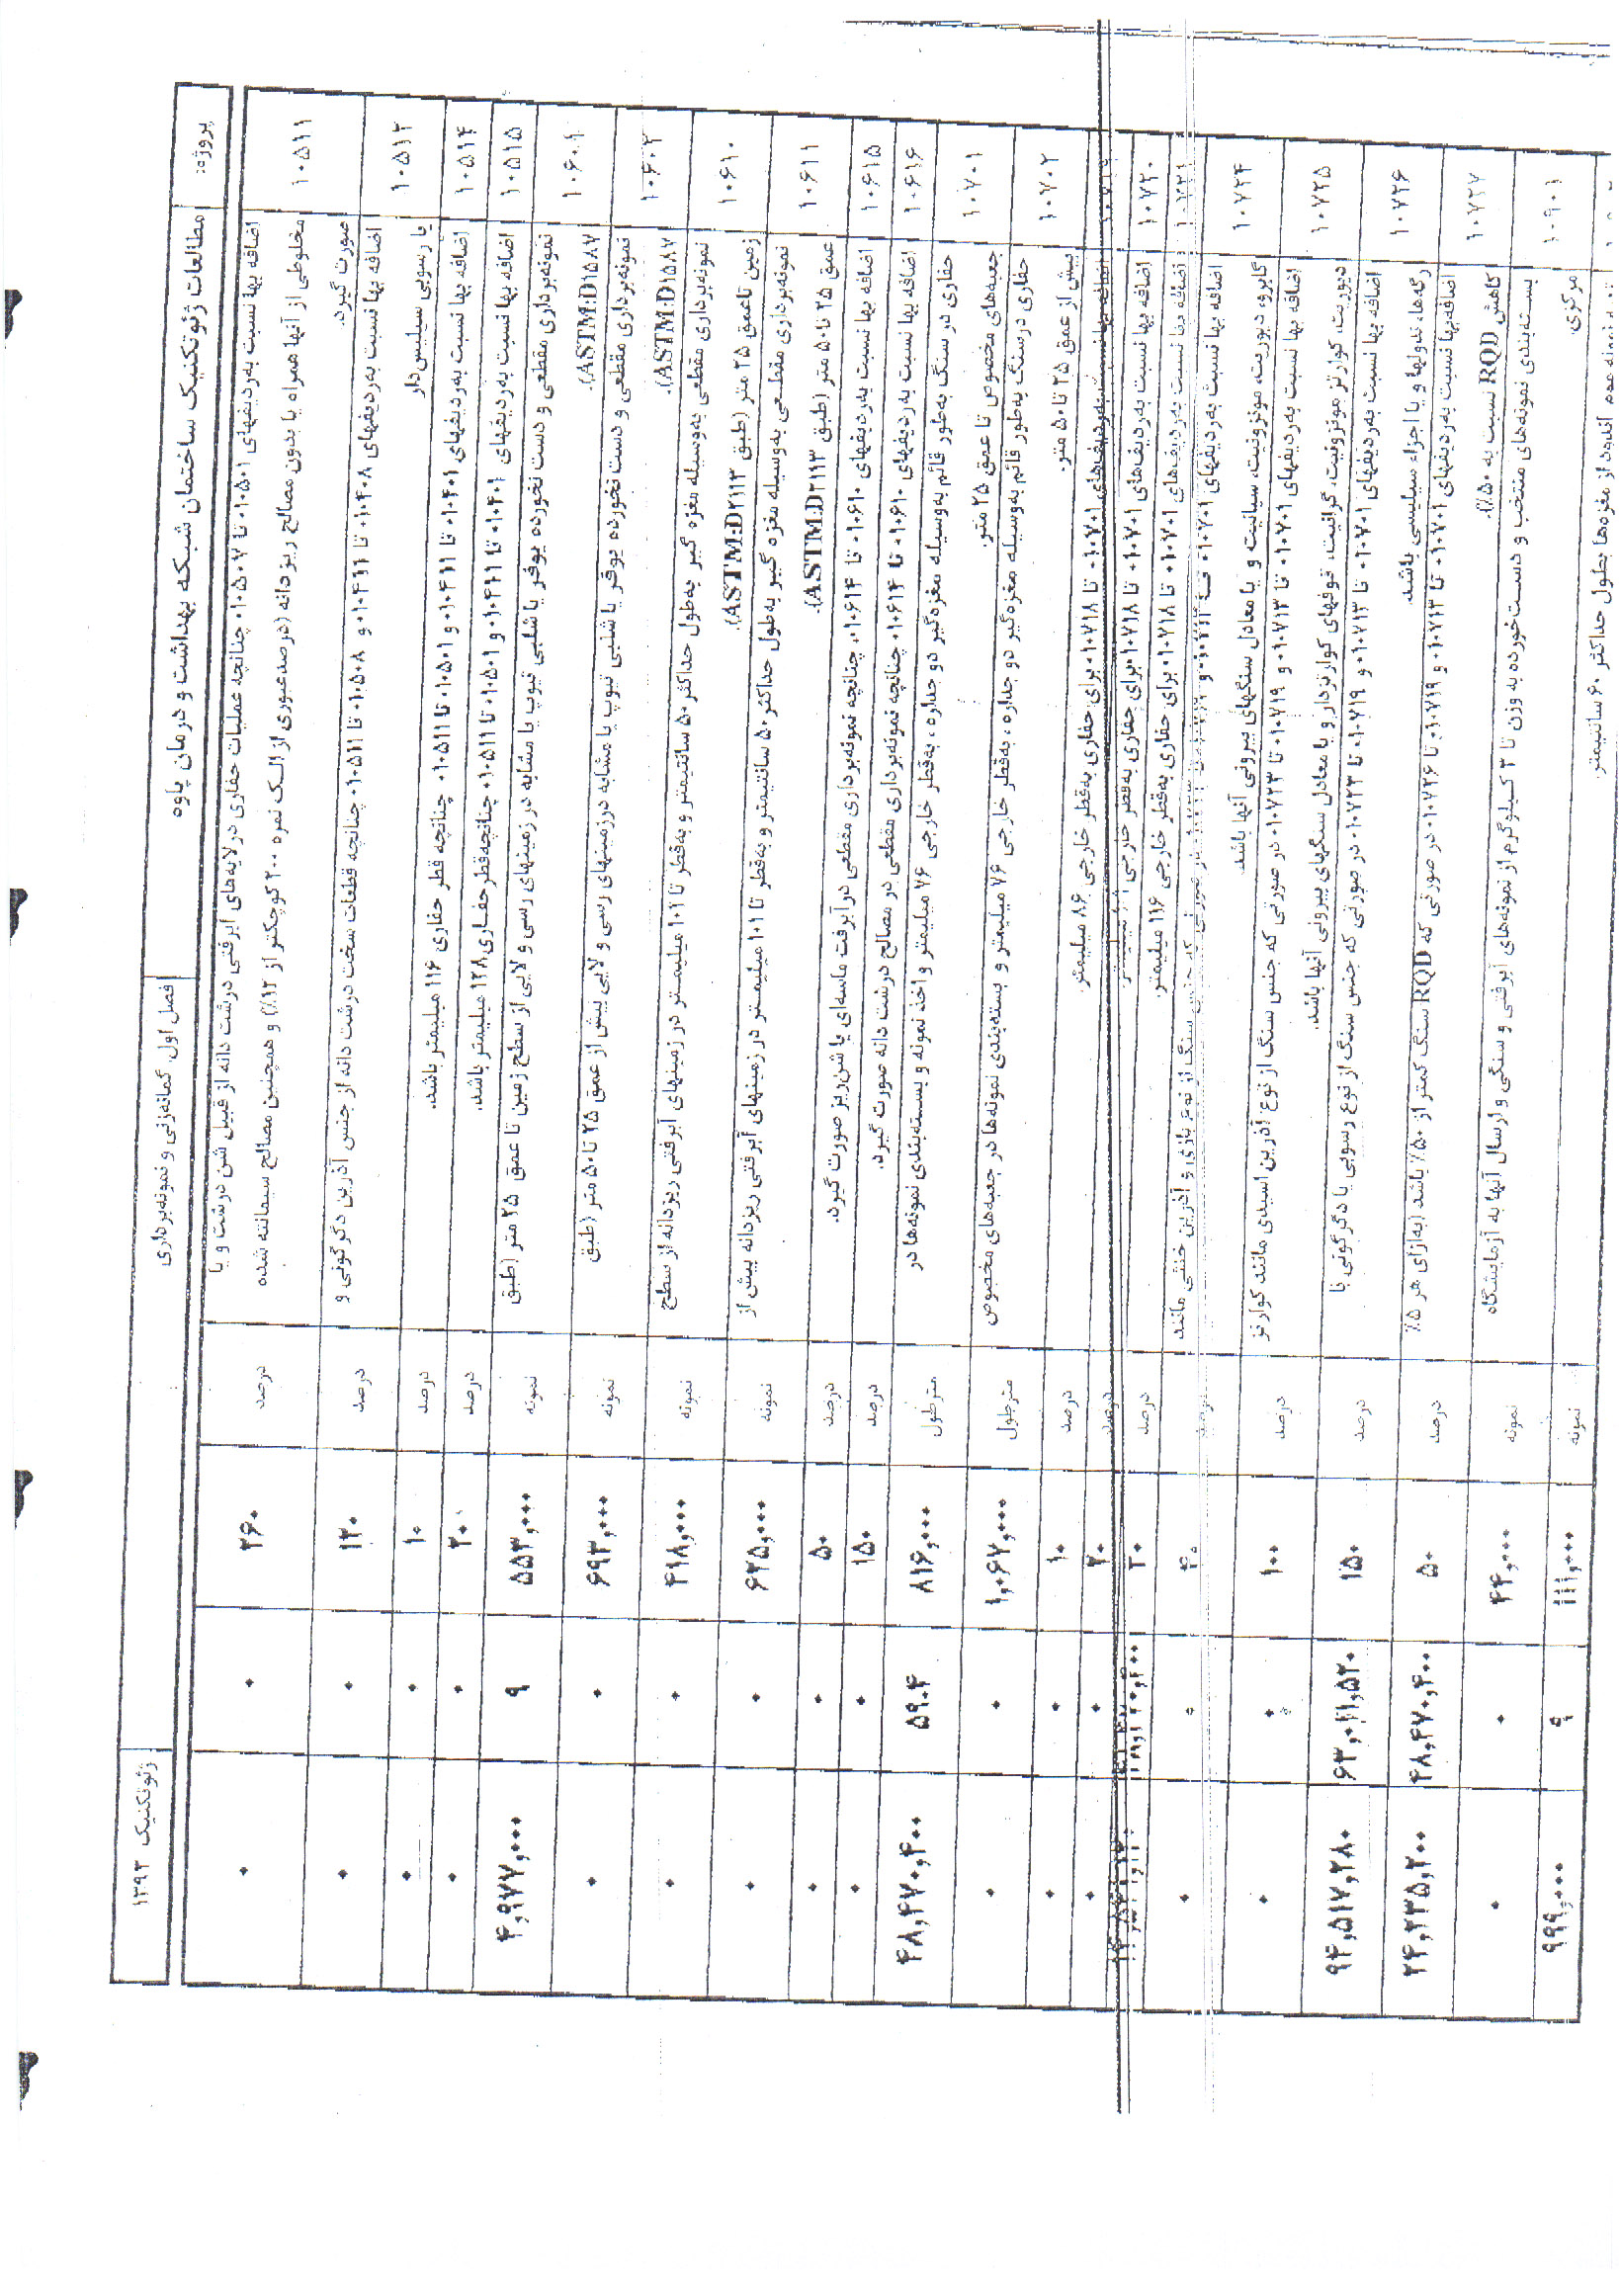 پروژه: مطالعات ژئوتکنیک ساختمان شبکه بهداشت و درمان پاوه فصل اول. گمانه‌زنی و نمونه‌برداری ژئوتکنیک ۱۳۹۳
۱۰۵۱۱ اضافه بها نسبت به‌ردیفهای ۱۰۵۰۱ تا ۱۰۵۰۷، چنانچه عملیات حفاری در لایه‌های آبرفتی درشت دانه از قبیل شن درشت و یا
مخلوطی از آنها همراه یا بدون مصالح ریزدانه (درصد عبوری از الک نمره ۲۰۰ کوچکتر از ۱۲٪) و همچنین مصالح سیمانته شده
صورت گیرد. درصد ۲۶۰ ۰ ۰
۱۰۵۱۲ اضافه بها نسبت به‌ردیفهای ۱۰۴۰۸ تا ۱۰۴۱۱ و ۱۰۵۰۸ تا ۱۰۵۱۱، چنانچه قطعات سخت درشت دانه از جنس آذرین دگرگونی و
یا رسوبی سیلیس‌دار درصد ۱۲۰ ۰ ۰
۱۰۵۱۴ اضافه بها نسبت به‌ردیفهای ۱۰۴۰۱ تا ۱۰۴۱۱ و ۱۰۵۰۱ تا ۱۰۵۱۱، چنانچه قطر حفاری ۱۱۶ میلیمتر باشد. درصد ۱۰ ۰ ۰
۱۰۵۱۵ اضافه بها نسبت به‌ردیفهای ۱۰۴۰۱ تا ۱۰۴۱۱ و ۱۰۵۰۱ تا ۱۰۵۱۱، چنانچه قطر حفاری ۱۲۸ میلیمتر باشد. درصد ۲۰ ۰ ۰
۱۰۶۰۱ نمونه‌برداری مقطعی و دست نخورده یوفور یا شلبی تیوپ یا مشابه در زمینهای رسی و لایی از سطح زمین تا عمق ۲۵ متر (طبق
ASTM:D۱۵۸۷). نمونه ۵۵۳,۰۰۰ ۹ ۴,۹۷۷,۰۰۰
۱۰۶۰۲ نمونه‌برداری مقطعی و دست نخورده یوفور یا شلبی تیوپ یا مشابه در زمینهای رسی و لایی بیش از عمق ۲۵ تا ۵۰ متر (طبق
ASTM:D۱۵۸۷). نمونه ۶۹۳,۰۰۰ ۰ ۰
۱۰۶۱۰ نمونه‌برداری مقطعی به‌وسیله مغزه گیر به‌طول حداکثر ۵۰ سانتیمتر و به‌قطر تا ۱۰۱ میلیمتر در زمینهای آبرفتی ریزدانه از سطح
زمین تا عمق ۲۵ متر (طبق ASTM:D۲۱۱۳). نمونه ۴۱۸,۰۰۰ ۰ ۰
۱۰۶۱۱ نمونه‌برداری مقطعی به‌وسیله مغزه گیر به‌طول حداکثر ۵۰ سانتیمتر و به‌قطر تا ۱۰۱ میلیمتر در زمینهای آبرفتی ریزدانه بیش از
عمق ۲۵ تا ۵۰ متر (طبق ASTM:D۲۱۱۳). نمونه ۶۲۵,۰۰۰ ۰ ۰
۱۰۶۱۵ اضافه بها نسبت به‌ردیفهای ۱۰۶۱۰ تا ۱۰۶۱۴، چنانچه نمونه‌برداری مقطعی در آبرفت ماسه‌ای یا شن‌ریز صورت گیرد. درصد ۵۰ ۰ ۰
۱۰۶۱۶ اضافه بها نسبت به‌ردیفهای ۱۰۶۱۰ تا ۱۰۶۱۴، چنانچه نمونه‌برداری مقطعی در مصالح درشت دانه صورت گیرد. درصد ۱۵۰ ۰ ۰
۱۰۷۰۱ حفاری در سنگ به‌طور قائم به‌وسیله مغزه‌گیر دو جداره، به‌قطر خارجی ۷۶ میلیمتر و اخذ نمونه و بسته‌بندی نمونه‌ها در
جعبه‌های مخصوص تا عمق ۲۵ متر. مترطول ۸۱۶,۰۰۰ ۵۹.۴ ۴۸,۴۷۰,۴۰۰
۱۰۷۰۲ حفاری درسنگ به‌طور قائم به‌وسیله مغزه‌گیر دو جداره، به‌قطر خارجی ۷۶ میلیمتر و بسته‌بندی نمونه‌ها در جعبه‌های مخصوص
بیش از عمق ۲۵ تا ۵۰ متر. مترطول ۱,۰۶۷,۰۰۰ ۰ ۰
اضافه بها نسبت به‌ردیف‌های ۱۰۷۰۱ تا ۱۰۷۱۸، برای حفاری به‌قطر خارجی ۸۶ میلیمتر. درصد ۱۰ ۰ ۰
۱۰۷۲۰ اضافه بها نسبت به‌ردیف‌های ۱۰۷۰۱ تا ۱۰۷۱۸، برای حفاری به‌قطر خارجی درصد ۲۰ ۰ ۰
۱۰۷۲۱ اضافه بها نسبت به‌ردیف‌های ۱۰۷۰۱ تا ۱۰۷۱۸، برای حفاری به‌قطر خارجی ۱۱۶ میلیمتر. درصد ۳۰
۱۰۷۲۴ سنگ از نوع بازی و آذرین خنثی مانند
گابرو، دیوریت، مونزونیت، سیانیت، و یا معادل سنگهای بیرونی آنها باشد. ۴۰ ۰ ۰
۱۰۷۲۵ اضافه بها نسبت به‌ردیفهای ۱۰۷۰۱ تا ۱۰۷۱۳ و ۱۰۷۱۹ تا ۱۰۷۲۳، در صورتی که جنس سنگ از نوع آذرین اسیدی مانند کوارتز
دیوریت، کوارتز مونزونیت، گرانیت، توفهای کوارتزدار و یا معادل سنگهای بیرونی آنها باشد. درصد ۱۰۰ ۰ ۰
۱۰۷۲۶ اضافه بها نسبت به‌ردیفهای ۱۰۷۰۱ تا ۱۰۷۱۳ و ۱۰۷۱۹ تا ۱۰۷۲۳، در صورتی که جنس سنگ از نوع رسوبی یا دگرگونی با
رگه‌ها، ندولها و یا اجزاء سیلیسی باشد. درصد ۱۵۰ ۶۳,۰۱۱,۵۲۰ ۹۴,۵۱۷,۲۸۰
۱۰۷۲۷ اضافه‌بها نسبت به‌ردیفهای ۱۰۷۰۱ تا ۱۰۷۱۳ و ۱۰۷۱۹ تا ۱۰۷۲۶، در صورتی که RQD سنگ کمتر از ۵۰٪ باشد (به‌ازای هر ۵٪
کاهش RQD نسبت به ۵۰٪). درصد ۵۰ ۴۸,۴۷۰,۴۰۰ ۲۴,۲۳۵,۲۰۰
۱۰۹۰۱ بسته‌بندی نمونه‌های منتخب و دست‌خورده به وزن تا ۳ کیلوگرم از نمونه‌های آبرفتی و سنگی و ارسال آنها به آزمایشگاه
مرکزی. نمونه ۴۴,۰۰۰ ۰ ۰
اندود از مغزه‌ها بطول حداکثر ۶۰ سانتیمتر. نمونه ۱۱۱,۰۰۰ ۹ ۹۹۹,۰۰۰